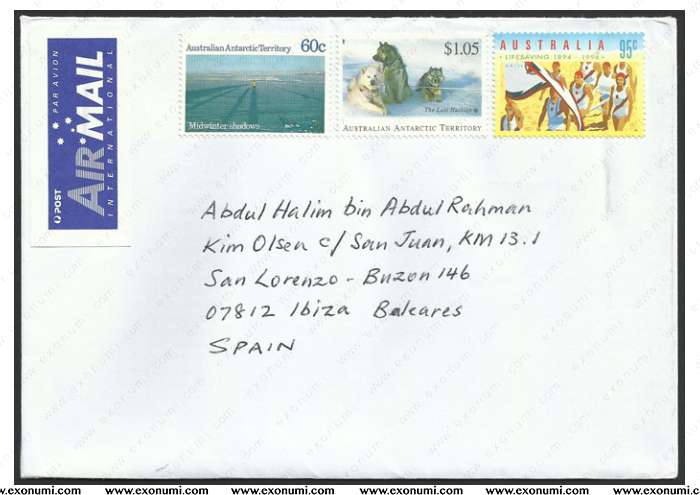 PAR AVION
AIRMAIL
INTERNATIONAL
POST
Australian Antarctic Territory 60c
Midwinter shadows
$1.05
The Last Huskies
AUSTRALIAN ANTARCTIC TERRITORY
AUSTRALIA 95c
LIFESAVING 1894 - 1994
Abdul Halim bin Abdul Rahman
Kim Olsen c/ San Juan, KM 13.1
San Lorenzo - Buzon 146
07812 Ibiza Baleares
SPAIN
www.exonumi.com www.exonumi.com www.exonumi.com www.exonumi.com www.exonumi.com www.exonumi.com